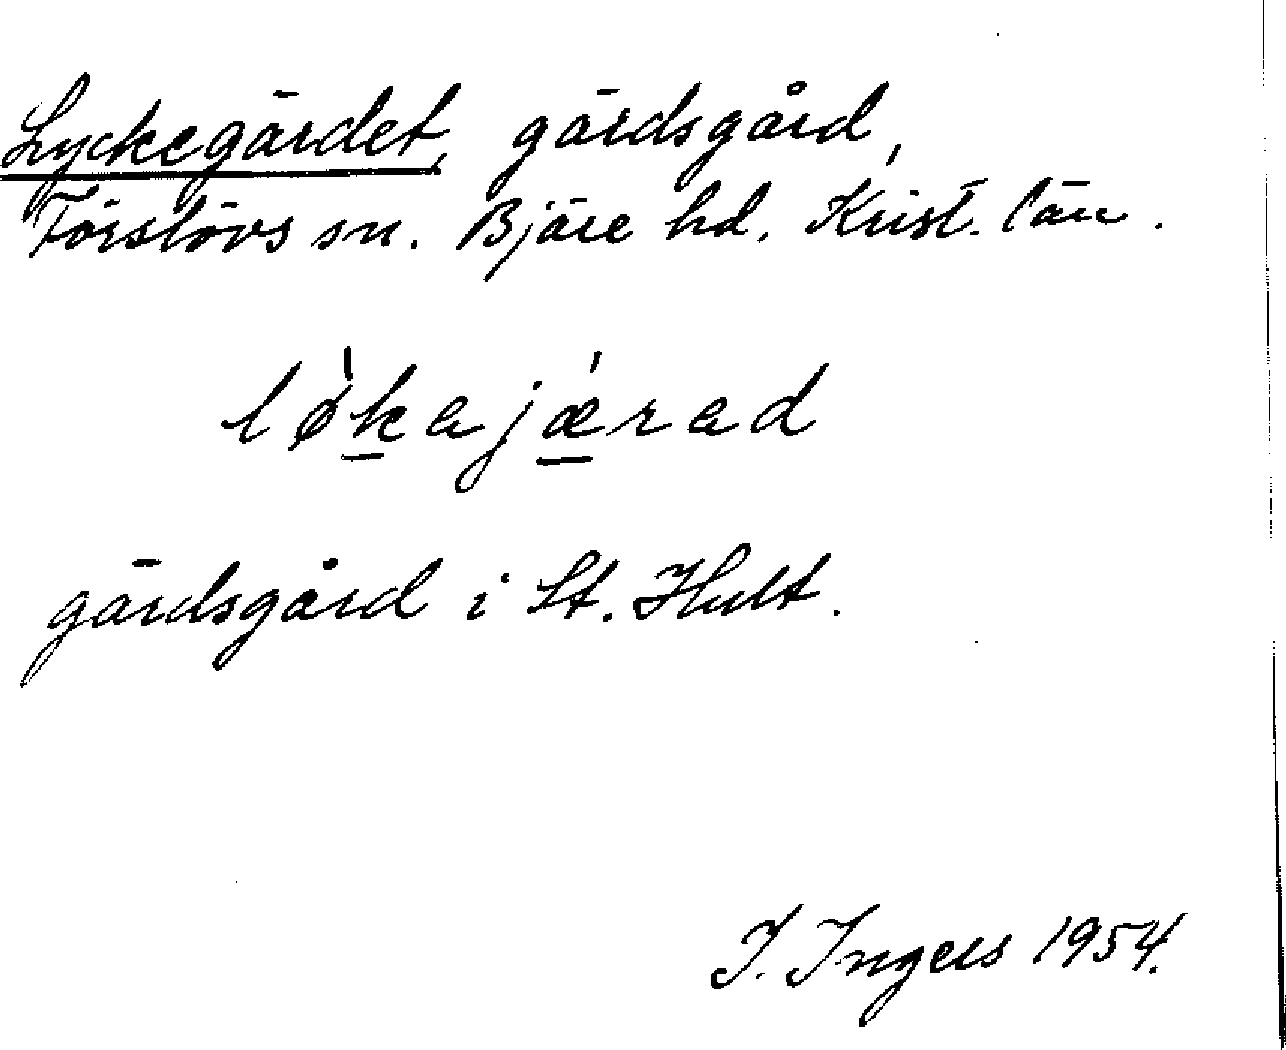 Lyckegärdet, gärdsgård,
Förslövs sn. Bjäre hd. Krist. län.
løkajærad
gärdsgård i St. Hult.
I. Ingers 1954.